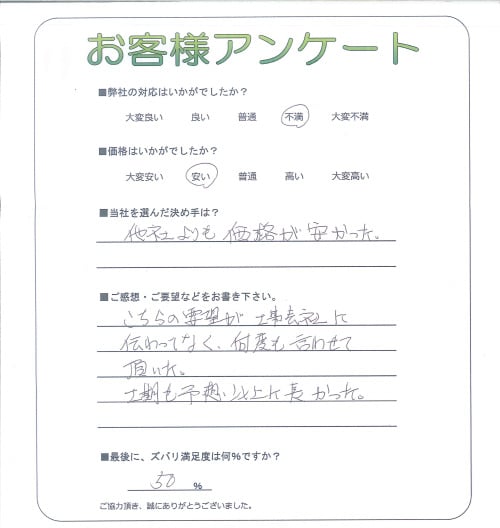 お客様アンケート
■弊社の対応はいかがでしたか？
大変良い 良い 普通 不満 大変不満
■価格はいかがでしたか？
大変安い 安い 普通 高い 大変高い
■当社を選んだ決め手は？
他社よりも価格が安かった。
■ご感想・ご要望などをお書き下さい。
こちらの要望が工事会社に
伝わってなく、何度も言わせて
頂いた。
工期も予想以上に長かった。
■最後に、ズバリ満足度は何%ですか？
50 %
ご協力頂き、誠にありがとうございました。